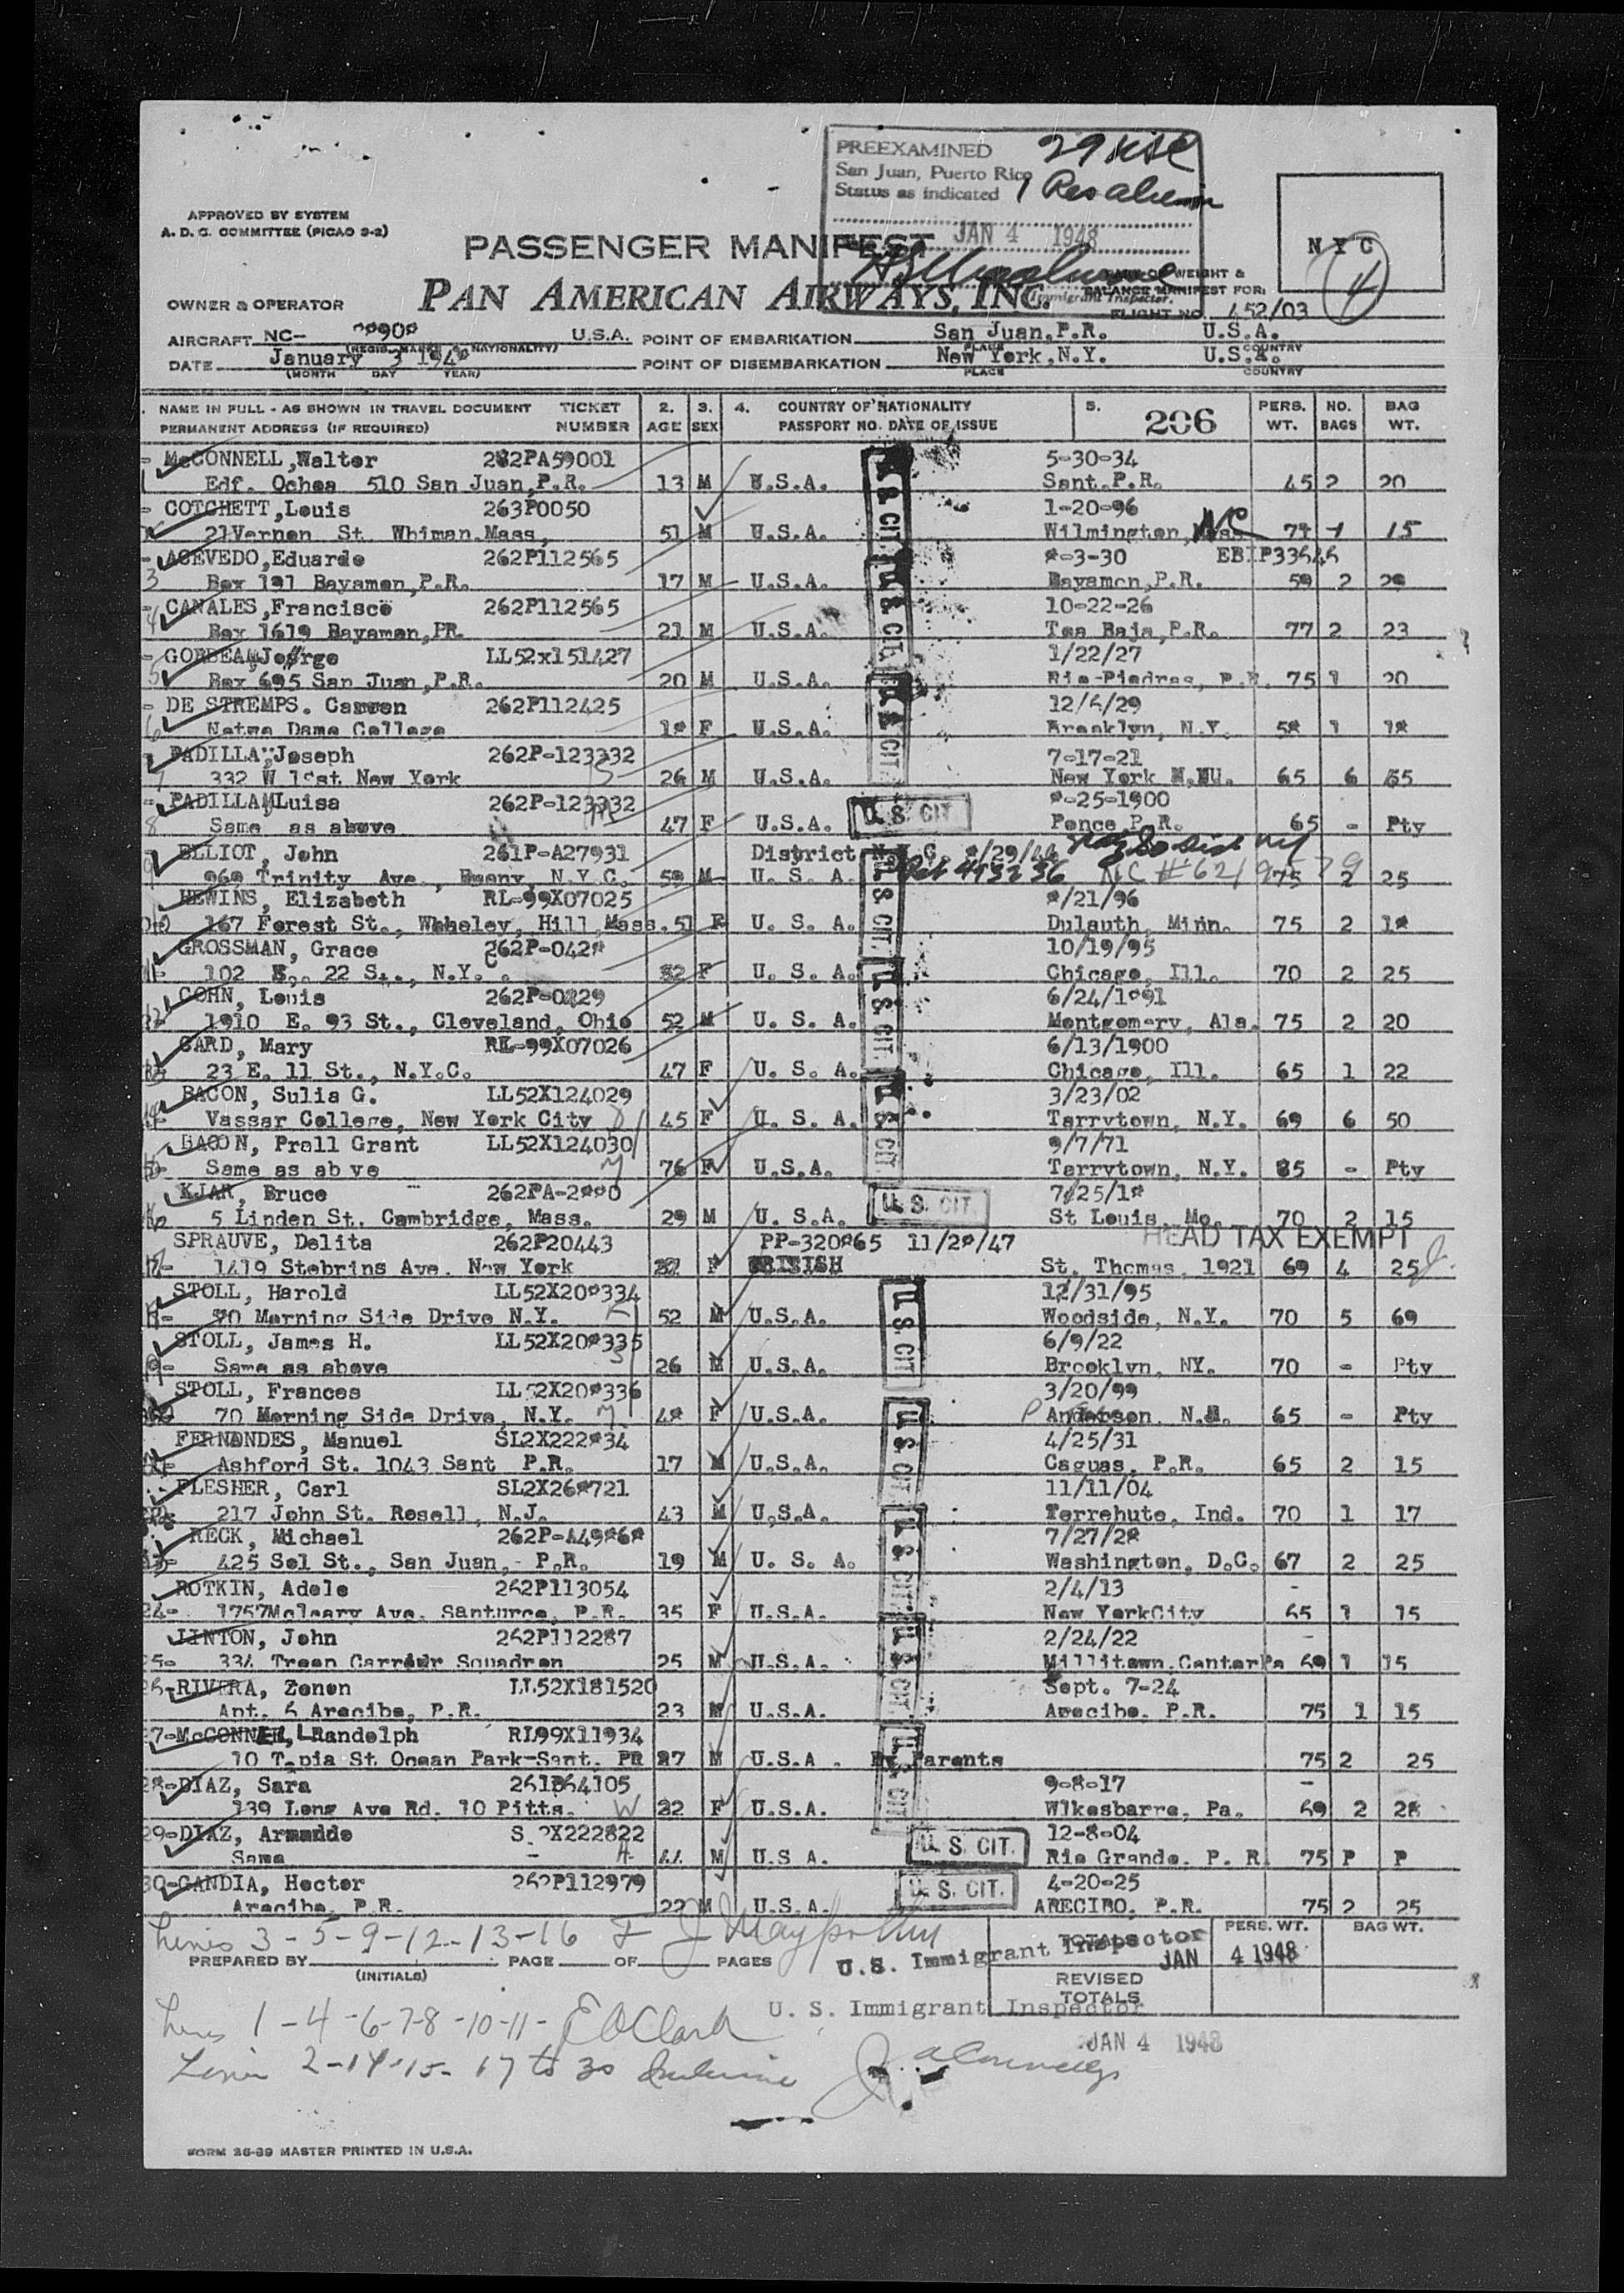 PREEXAMINED
San Juan, Puerto Rico
Status as indicated
29 USC
1 Res alien
JAN 4 1948
Immigrant Inspector.
APPROVED BY SYSTEM
A. D. C. COMMITTEE (PICAO 9-2)
PASSENGER MANIFEST
PAN AMERICAN AIRWAYS, INC.
N Y C
4
PART OF WEIGHT &
BALANCE MANIFEST FOR:
FLIGHT NO. 452/03
OWNER & OPERATOR
AIRCRAFT NC- U.S.A. POINT OF EMBARKATION San Juan, P.R. U.S.A.
(REGIS. MARKS & NATIONALITY) PLACE COUNTRY
DATE January 3 POINT OF DISEMBARKATION New York, N.Y. U.S.A.
(MONTH DAY YEAR) PLACE COUNTRY
NAME IN FULL - AS SHOWN IN TRAVEL DOCUMENT TICKET 2. 3. 4. COUNTRY OF NATIONALITY 5. 206 PERS. NO. BAG
PERMANENT ADDRESS (IF REQUIRED) NUMBER AGE SEX PASSPORT NO. DATE OF ISSUE WT. BAGS WT.
McCONNELL, Walter 282PA59001 5-30-34
1 Edf. Ochoa 510 San Juan, P.R. 13 M U.S.A. Sant. P.R. 45 2 20
COTCHETT, Louis 263P0050 1-20-96
21 Vernon St. Whiman. Mass, 51 M U.S.A. Wilmington, NC 15
ACEVEDO, Eduardo 262P112565 EBIP33646
3 Box 191 Bayamon, P.R. 17 M U.S.A. Bayamon, P.R. 59 2 29
CANALES, Francisco 262P112565 10-22-26
4 Box 1619 Bayamon, PR. 21 M U.S.A. Toa Baja, P.R. 77 2 23
LL52x151427 1/22/27
5 Box 695 San Juan, P.R. 20 M U.S.A. Rio-Piedras, P.R. 75 1 20
DE STREMPS. 262P112425 12/6/29
6 Notre Dame College F U.S.A. Brooklyn, N.Y. 1
PADILLA, Joseph 262P-123332 7-17-21
7 332 W New York 26 M U.S.A. New York 65 6 65
PADILLA, Luisa 262P-123332
8 Same as above 47 F U.S.A. Ponce P.R. 65 - Pty
ELLIOT, John 261P-A27931 District N.Y.C.
9 969 Trinity Ave., N.Y.C. 59 M U. S. A. 75 2 25
HEWINS, Elizabeth RL-99X07025
10 167 Forest St., Hill, Mass. 51 F U. S. A. Duluath, Minn. 75 2
GROSSMAN, Grace 10/19/95
11- 102 E. 22 St., N.Y.C. F U. S. A. Chicago, Ill. 70 2 25
COHN, Louis
1910 E. 93 St., Cleveland, Ohio 52 M U. S. A. Montgomery, Ala. 75 2 20
CARD, Mary RL-99X07026 6/13/1900
23 E. 11 St., N.Y.C. 47 F U. S. A. Chicago, Ill. 65 1 22
BACON, Sulia G. LL52X124029 3/23/02
Vassar College, New York City 45 F U. S. A. Tarrytown, N.Y. 69 6 50
BACON, Prall Grant LL52X124030 9/7/71
Same as ab ve 76 F U.S.A. Tarrytown, N.Y. 85 - Pty
KJAR, Bruce
5 Linden St. Cambridge, Mass. 29 M U. S.A. St Louis, Mo. 70 2 15
HEAD TAX EXEMPT
SPRAUVE, Delita 262P20443
17- 1419 Stebrins Ave. New York F BRITISH St. Thomas, 1921 69 4 25
STOLL, Harold 12/31/95
70 Morning Side Drive N.Y. 52 M U.S.A. Woodside, N.Y. 70 5 69
STOLL, James H. 6/9/22
19- Same as above 26 M U.S.A. Brooklyn, NY. 70 - Pty
STOLL, Frances 3/20/99
70 Morning Side Drive, N.Y. F U.S.A. 65 - Pty
FERNANDES, Manuel 4/25/31
Ashford St. 1043 Sant P.R. 17 M U.S.A. Caguas, P.R. 65 2 15
FLESHER, Carl 11/11/04
217 John St. Rosell, N.J. 43 M U.S.A. Terrehute, Ind. 70 1 17
RECK, Michael
425 Sol St., San Juan, - P.R. 19 M U. S. A. Washington, D.C. 67 2 25
ROTKIN, Adele 262P113054 2/4/13
24- 1757 Mcleary Ave. Santurce, P.R. 35 F U.S.A. New YorkCity 65 1 15
LINTON, John 262P112287 2/24/22
25- 334 Troop Carrier Squadron 25 M U.S.A. 69 1 15
26-RIVERA, Zenon LL52X181520 Sept. 7-24
Apt. 6 Arecibo, P.R. 23 M U.S.A. Arecibo. P.R. 75 1 15
27-McCONNELL, Randolph RL99X11934
10 Tapia St Ocean Park-Sant. PR 27 M U.S.A. By Parents 75 2 25
28-DIAZ, Sara 261P64105 9-8-17
139 Long Ave Rd. 10 Pitts. F U.S.A. Wlkesbarre, Pa. 69 2 28
29-DIAZ, Armando 12-8-04
Same 44 M U.S A. Rio Grande. P. R. 75 P P
30-CANDIA, Hector 262P112979 4-20-25
Arecibo, P.R. 22 M U.S.A. ARECIBO, P.R. 75 2 25
U. S. CIT.
U. S. CIT.
U. S. CIT.
U. S. CIT.
Lines 3-5-9-12-13-16
PREPARED BY PAGE OF PAGES
(INITIALS)
U.S. Immigrant Inspector
JAN 4 1948
TOTALS PERS. WT. BAG WT.
REVISED
TOTALS
Lines 1-4-6-7-8-10-11- E O Clark
U. S. Immigrant Inspector
JAN 4 1948
Lines 2-14-15-17 to 30 Inclusive
FORM 26-39 MASTER PRINTED IN U.S.A.